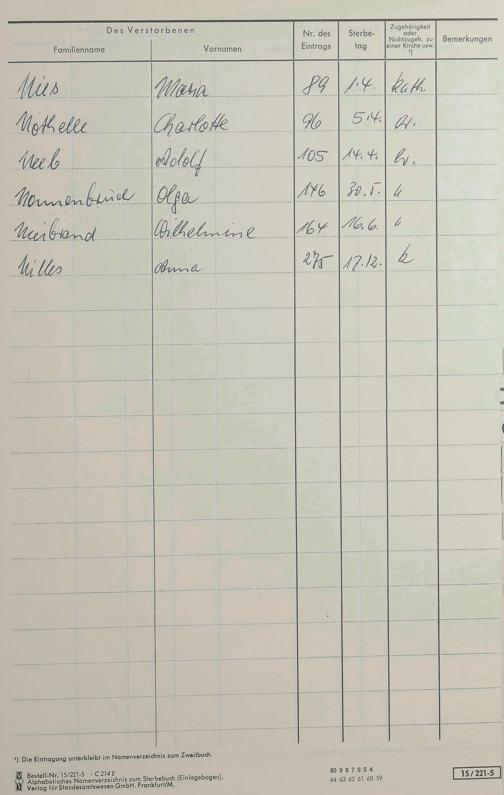 Des Verstorbenen
Familienname Vornamen Nr. des Eintrags Sterbe-tag Zugehörigkeit oder Nichtzugeh. zu einer Kirche usw. ¹) Bemerkungen
Nies Maria 89 1.4. kath.
Nothelle Charlotte 96 5.4. ev.
Neeb Adolf 105 14.4. ev.
Nonnenbruch Olga 146 30.5. "
Neibrand Wilhelmine 164 16.6. "
Nilles Anna 275 17.12. k
¹) Die Eintragung unterbleibt im Namenverzeichnis zum Zweitbuch.
Bestell-Nr. 15/221-5 - C 214 E
Alphabetisches Namenverzeichnis zum Sterbebuch (Einlagebogen).
Verlag für Standesamtswesen GmbH. Frankfurt/M.
80 9 8 7 6 5 4
64 63 62 61 60 59
15/221-5